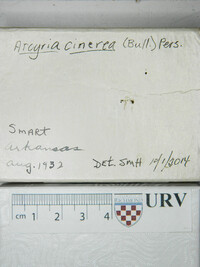 Arcyria cinerea (Bull.) Pers.
Smart
arkansas
aug. 1932
Det. SmH 10/1/2014
cm 1 2 3 4
RICHMOND
URV